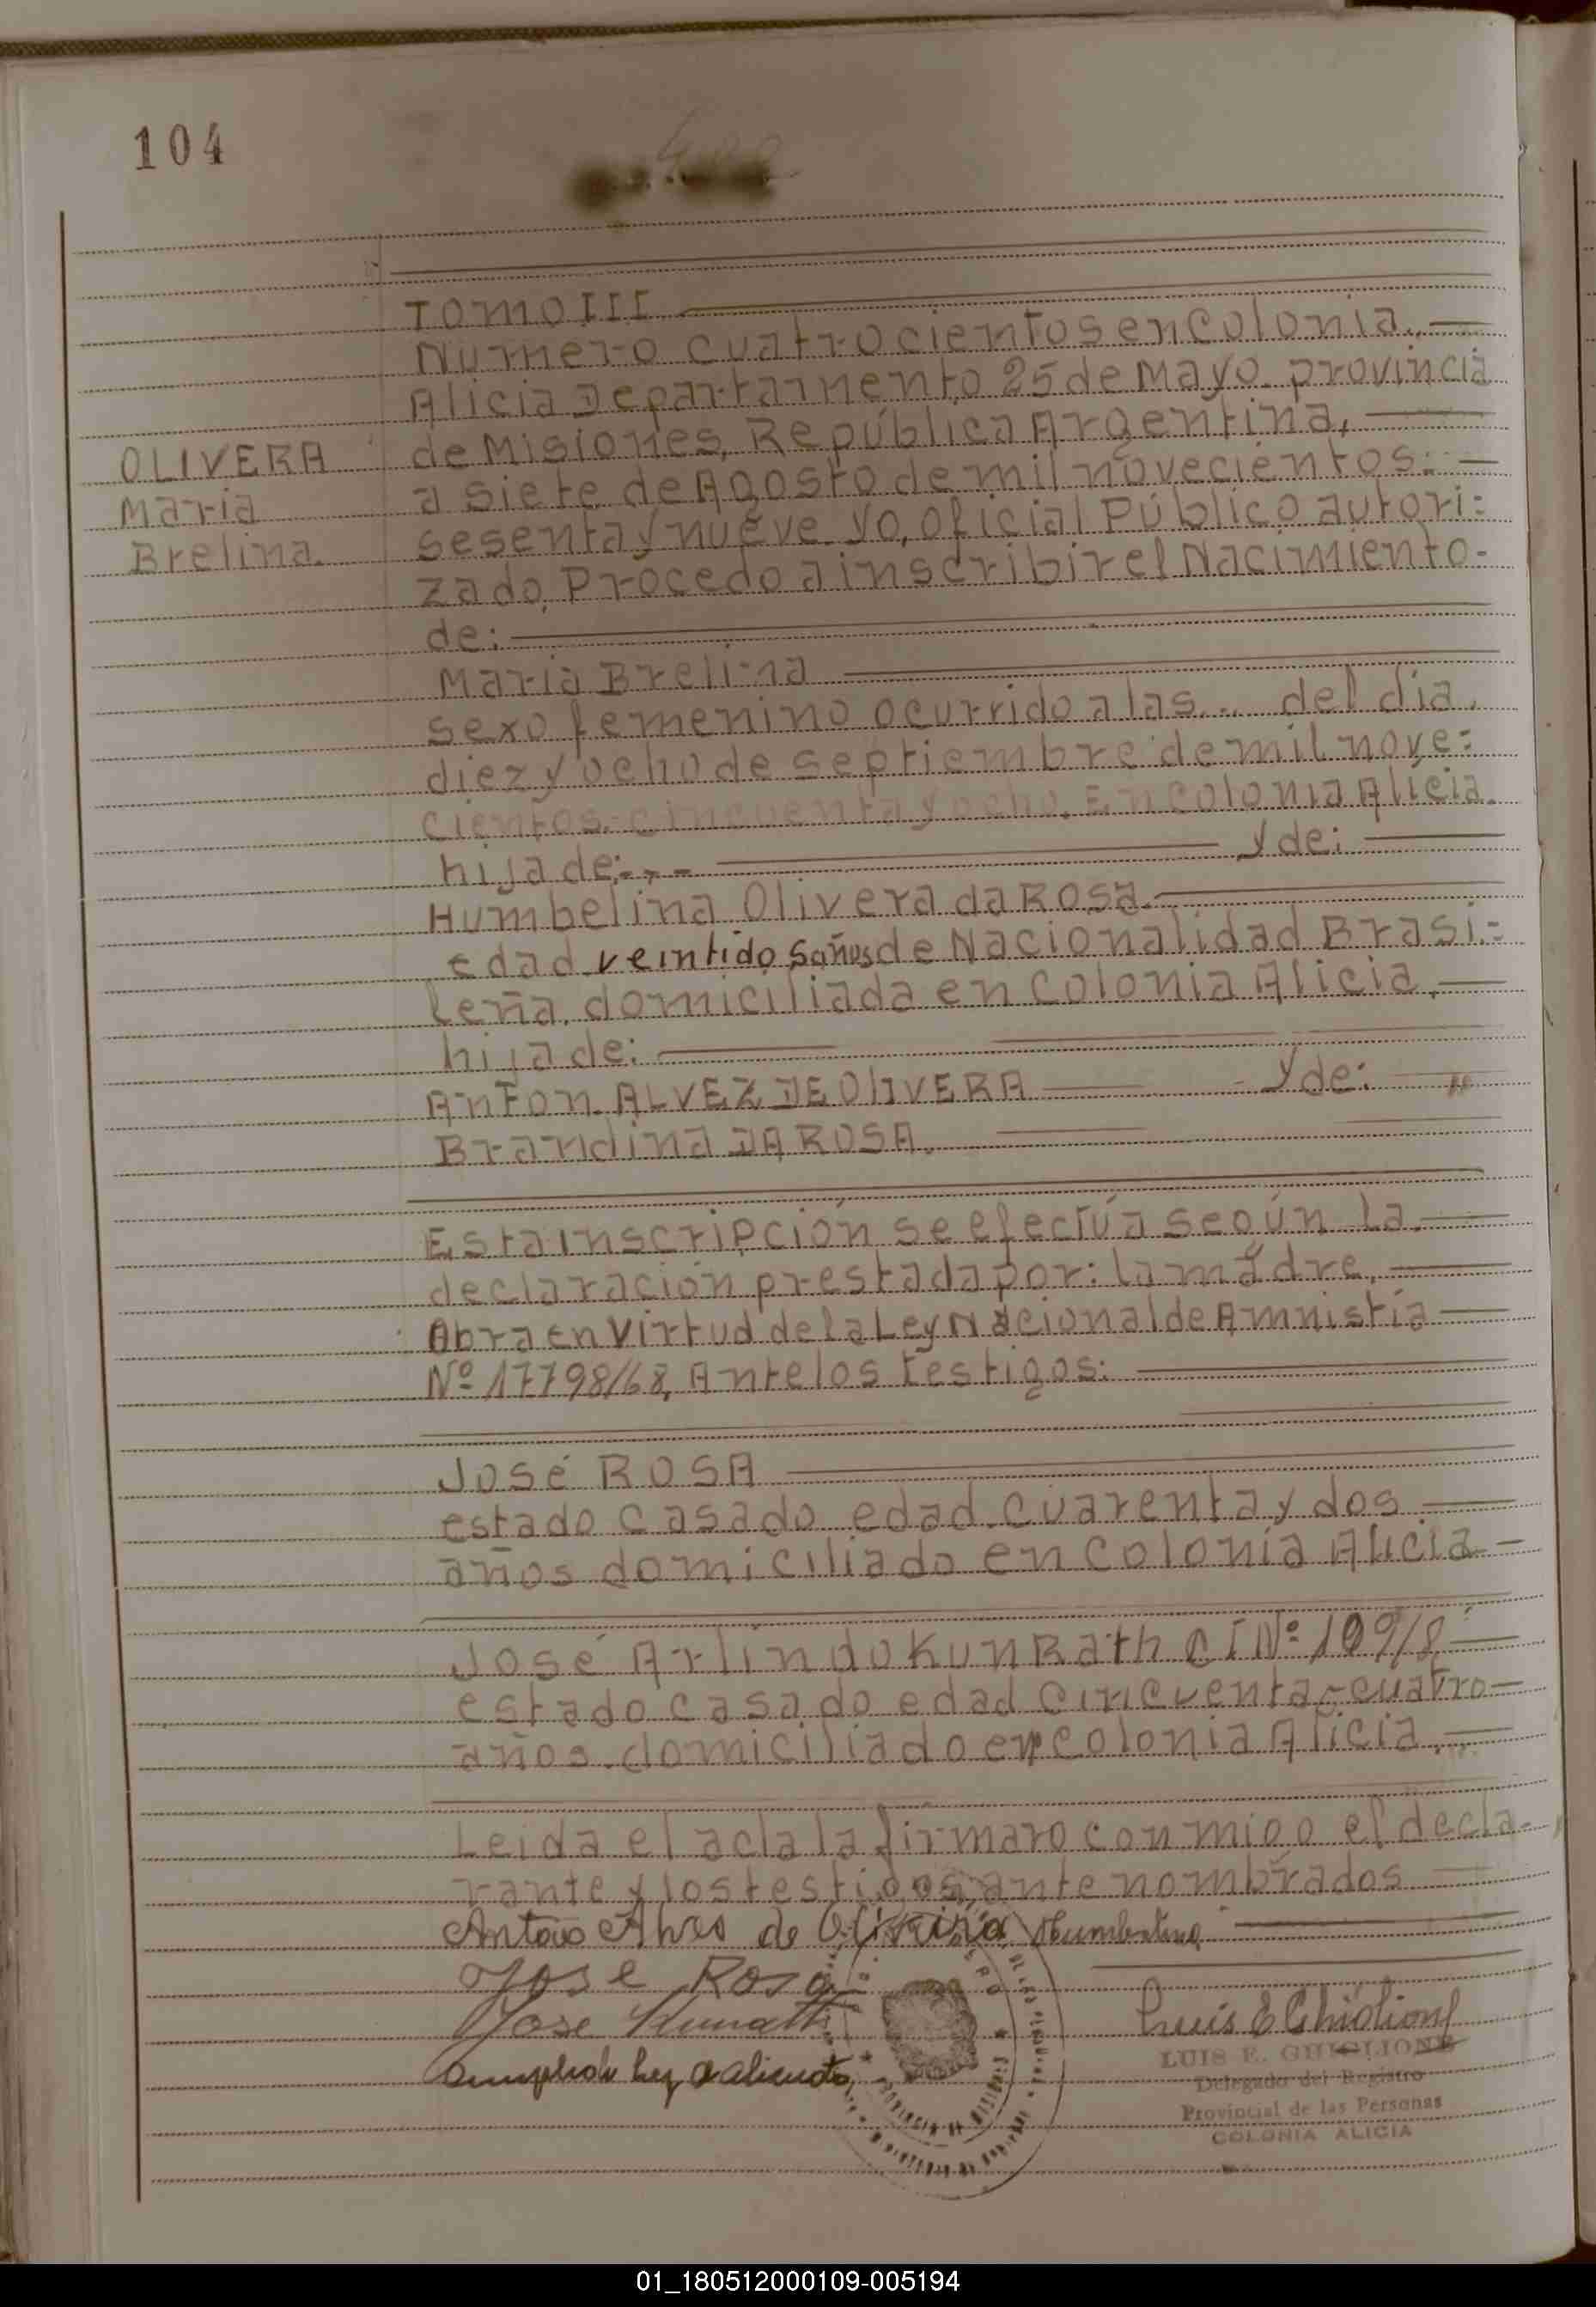 104
400
TOMO III
Numero cuatrocientos en Colonia.
Alicia Departamento 25 de Mayo. provincia
de Misiones, República Argentina,
OLIVERA
a siete de Agosto de mil novecientos.
Maria
sesenta y nueve. yo, oficial Público autori=
Brelina.
zado, Procedo a inscribir el Nacimiento-
de:
Maria Brelina
sexo femenino ocurrido a las... del día.
diez y ocho de septiembre de mil nove=
cientos.-cincuenta y ocho. En colonia Alicia.
hija de:-.- y de:
Humbelina Olivera da Rosa.
edad veintidos años de Nacionalidad Brasi.=
leña. domiciliada en Colonia Alicia.
hija de:
Anton. ALVEZ DE OlIVERA y de:
Brandina DA ROSA.
Esta inscripción se efectúa según la.
declaración prestada por: la madre.
Abra en Virtud de la Ley Nacional de Amnistía
Nº 17798/68, Ante los testigos:
José ROSA
estado casado edad. cuarenta y dos
años domiciliado en colonia Alicia
José Arlindo KunRath CI Nº
estado casado edad cincuenta-cuatro
años. domiciliado en colonia Alicia.
Leida el acla la firmaro con migo el decla-
rante y los testigos, ante nombrados
Antonio Alves de Oliveira Humbelina
Jose Rosa
Jose Kunrath Luis E Ghiglione
LUIS E. GHIGLIONE
Delegado del Registro
Provincial de las Personas
COLONIA ALICIA
01_180512000109-005194